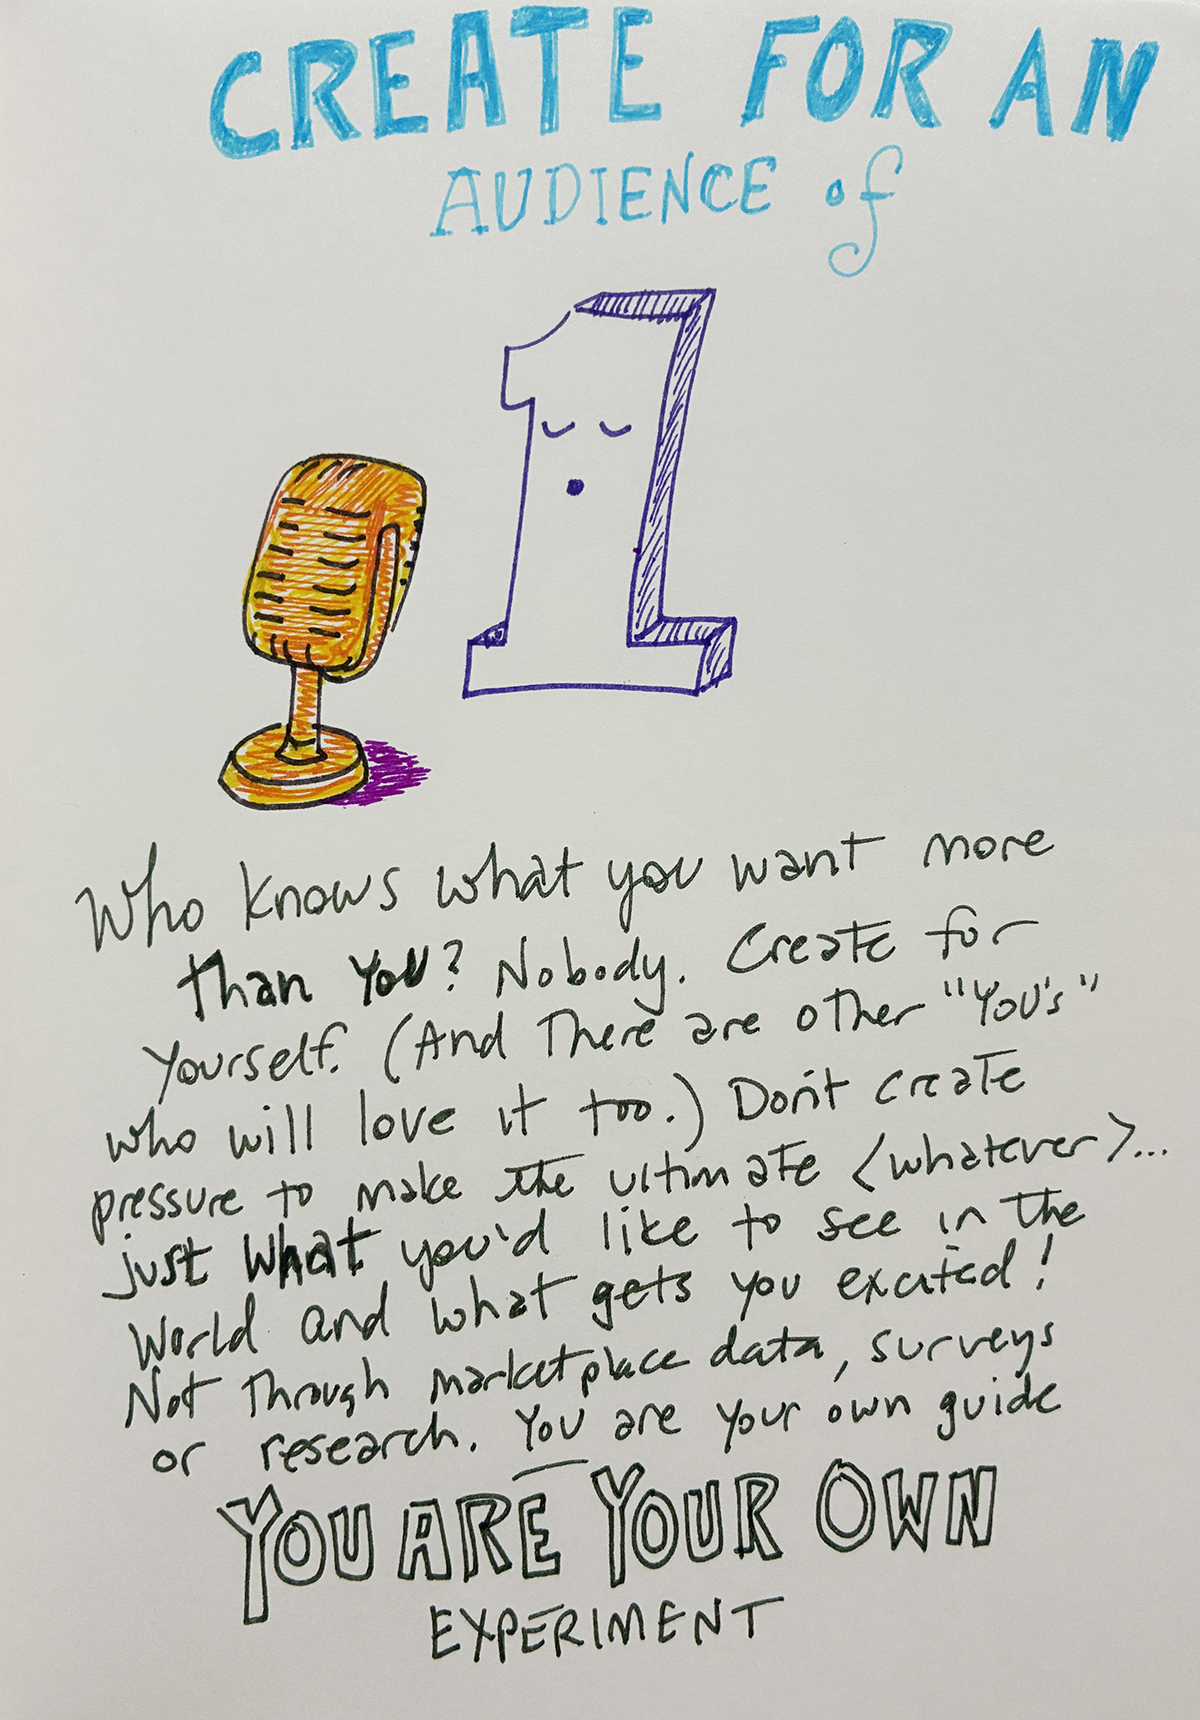 CREATE FOR AN
AUDIENCE of
1
Who knows what you want more
than you? Nobody. Create for
yourself. (And there are other "You's"
who will love it too.) Don't create
pressure to make the ultimate <whatever>...
just what you'd like to see in the
world and what gets you excited!
Not through marketplace data, surveys
or research. You are your own guide
YOU ARE YOUR OWN
EXPERIMENT